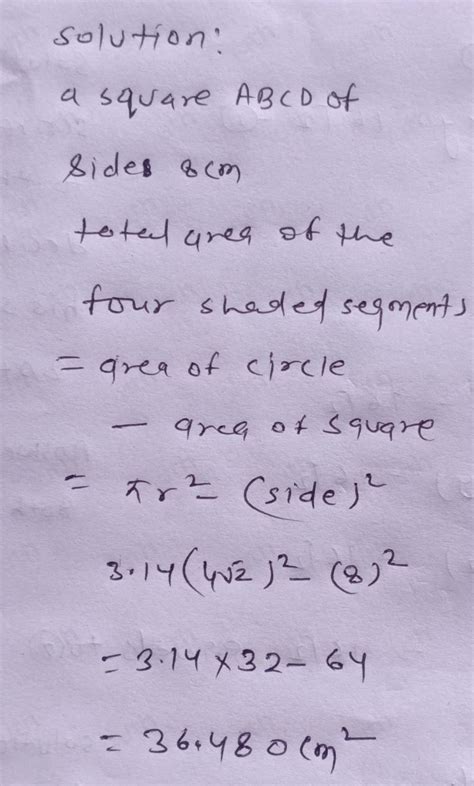 solution:
a square ABCD of
sides 8cm
total area of the
four shaded segments
= area of circle
- area of square
= πr² - (side)²
3.14(4√2)² - (8)²
= 3.14 × 32 - 64
= 36.480 cm²